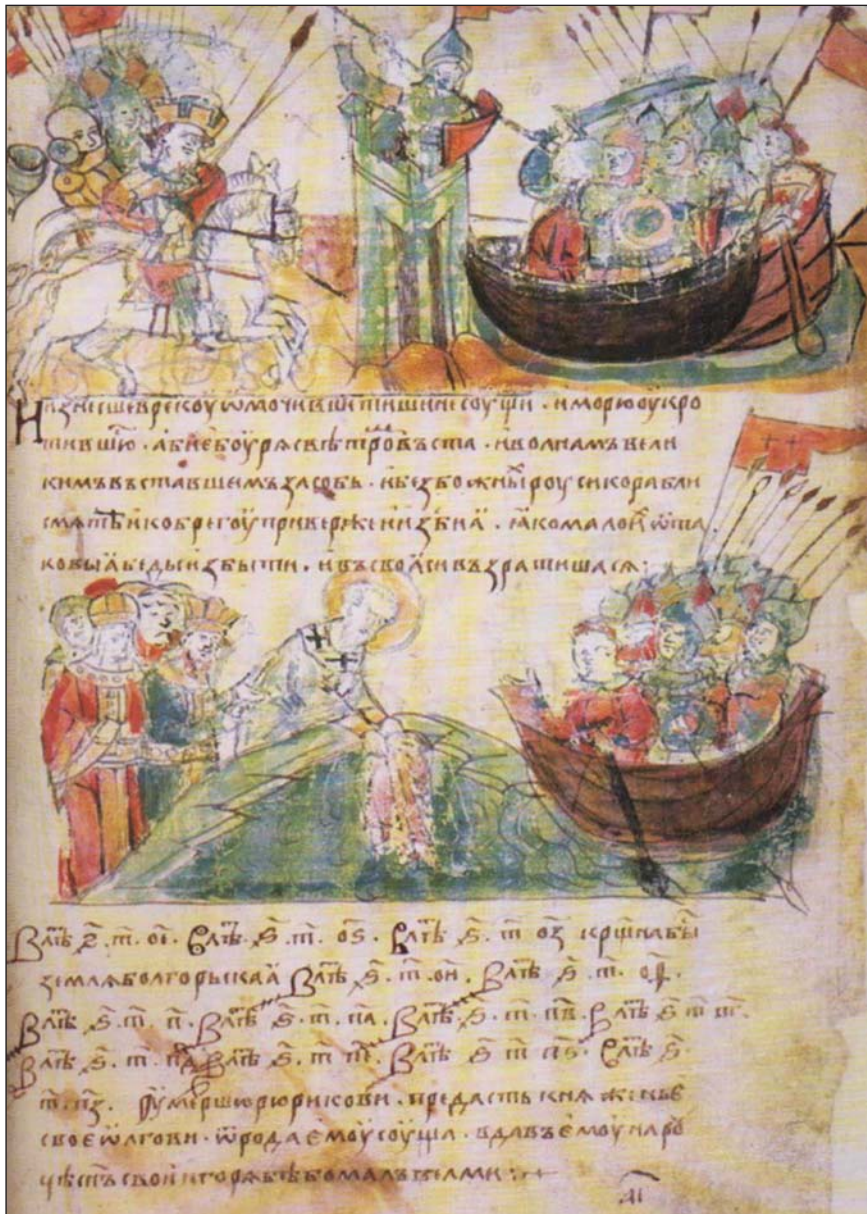 Изнесше в рекоу ѡмочивши тишине соущи . и морю оукро
тившюⷭ . абие боурѧ с вѣтроⷨ въста . и волнамъ вели
кимъ въставшемъ засобь . и безбожныⷯ роуси корабли
смѧте и к брегоу приверже и изби ꙗ . ꙗко мало иⷯ ѿ та
ковыꙗ беды избыти . и въ своꙗси възратишасѧ :
В лѣⷮ ҂ѕ҃ . т҃ . ое҃ . В лѣⷮ ҂ѕ҃ . т҃ . оѕ҃ . В лѣⷮ ҂ѕ҃ . т҃ оз҃ крщ҃на быⷭ
землѧ болгорьскаꙗ В лѣⷮ ҂ѕ҃ . т҃ . ои҃ . В лѣⷮ ҂ѕ҃ . т҃ . оѳ҃ .
В лѣⷮ ҂ѕ҃ . т҃ . п҃ . В лѣⷮ ҂ѕ҃ . т҃ . па҃ . В лѣⷮ ҂ѕ҃ . т҃ . пв҃ . В лѣⷮ ҂ѕ҃ т҃ пг҃ .
В лѣⷮ ҂ѕ҃ . т҃ . пд҃ . В лѣⷮ ҂ѕ҃ . т҃ . пе҃ . В лѣⷮ ҂ѕ҃ т҃ пѕ҃ . В лѣⷮ ҂ѕ҃ .
т҃ . пз҃ . оумершю рюрикови . предасть кнѧженье
свое ѡлгови . ѿ рода емоу соуща . вдавъ емоу на роу
цѣ сн҃ъ свои игорѧ бѣ бо малъ велми :